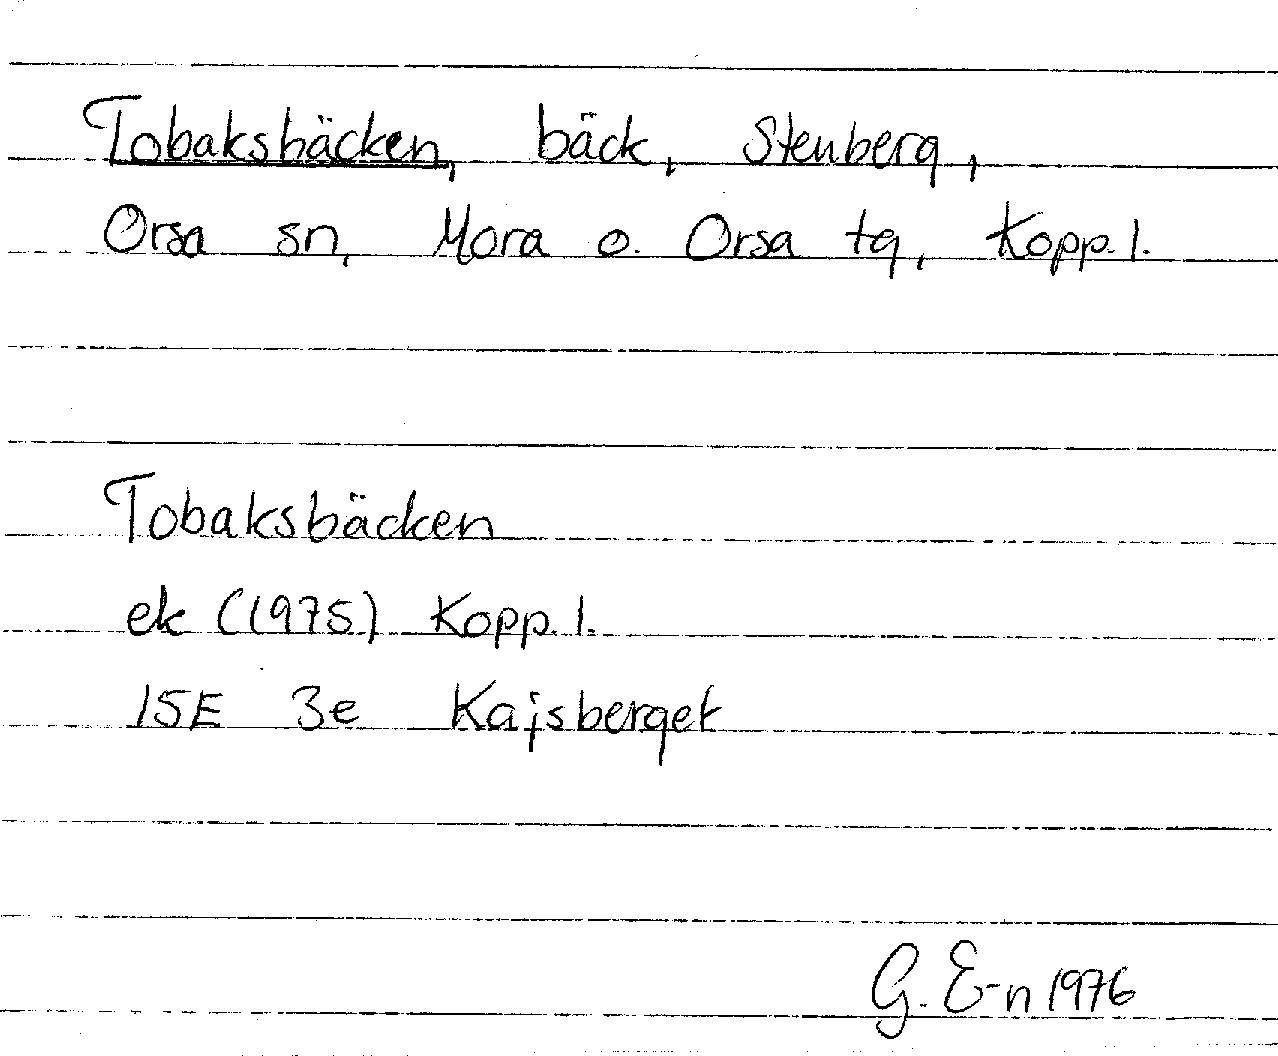 Tobaksbäcken, bäck, Stenberg,
Orsa sn, Mora o. Orsa tg, Kopp. l.
Tobaksbäcken
ek (1975) Kopp. l.
15E 3e Kajsberget
G. E-n 1976